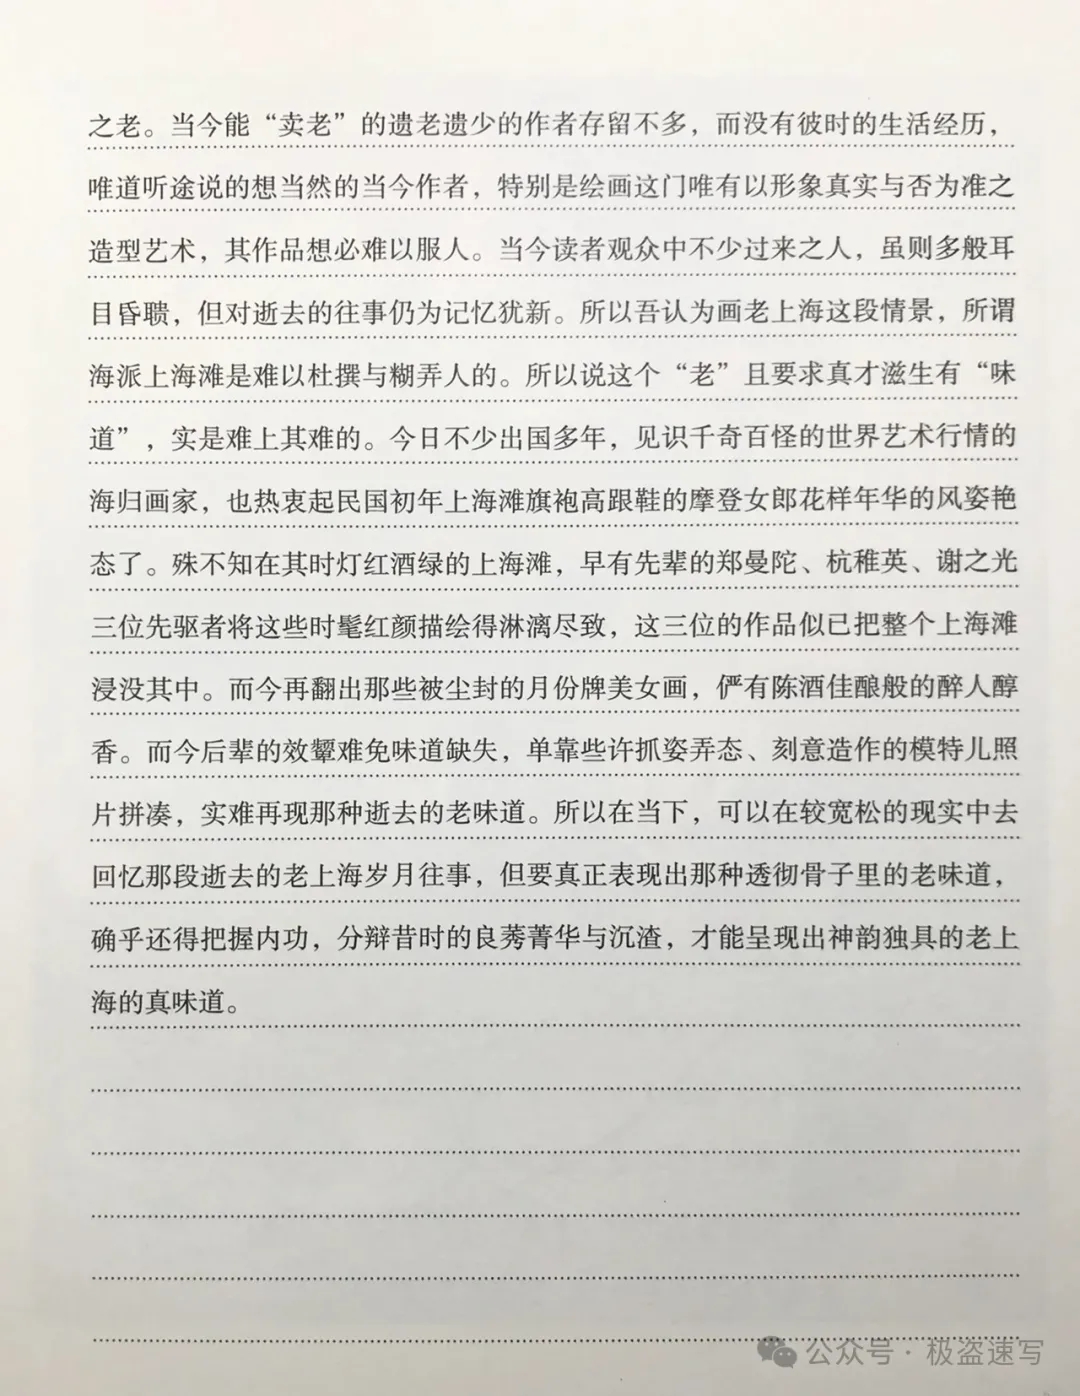 之老。当今能“卖老”的遗老遗少的作者存留不多，而没有彼时的生活经历，
唯道听途说的想当然的当今作者，特别是绘画这门唯有以形象真实与否为准之
造型艺术，其作品想必难以服人。当今读者观众中不少过来之人，虽则多般耳
目昏聩，但对逝去的往事仍为记忆犹新。所以吾认为画老上海这段情景，所谓
海派上海滩是难以杜撰与糊弄人的。所以说这个“老”且要求真才滋生有“味
道”，实是难上其难的。今日不少出国多年，见识千奇百怪的世界艺术行情的
海归画家，也热衷起民国初年上海滩旗袍高跟鞋的摩登女郎花样年华的风姿艳
态了。殊不知在其时灯红酒绿的上海滩，早有先辈的郑曼陀、杭稚英、谢之光
三位先驱者将这些时髦红颜描绘得淋漓尽致，这三位的作品似已把整个上海滩
浸没其中。而今再翻出那些被尘封的月份牌美女画，俨有陈酒佳酿般的醉人醇
香。而今后辈的效颦难免味道缺失，单靠些许抓姿弄态、刻意造作的模特儿照
片拼凑，实难再现那种逝去的老味道。所以在当下，可以在较宽松的现实中去
回忆那段逝去的老上海岁月往事，但要真正表现出那种透彻骨子里的老味道，
确乎还得把握内功，分辩昔时的良莠菁华与沉渣，才能呈现出神韵独具的老上
海的真味道。
公众号·极盗速写